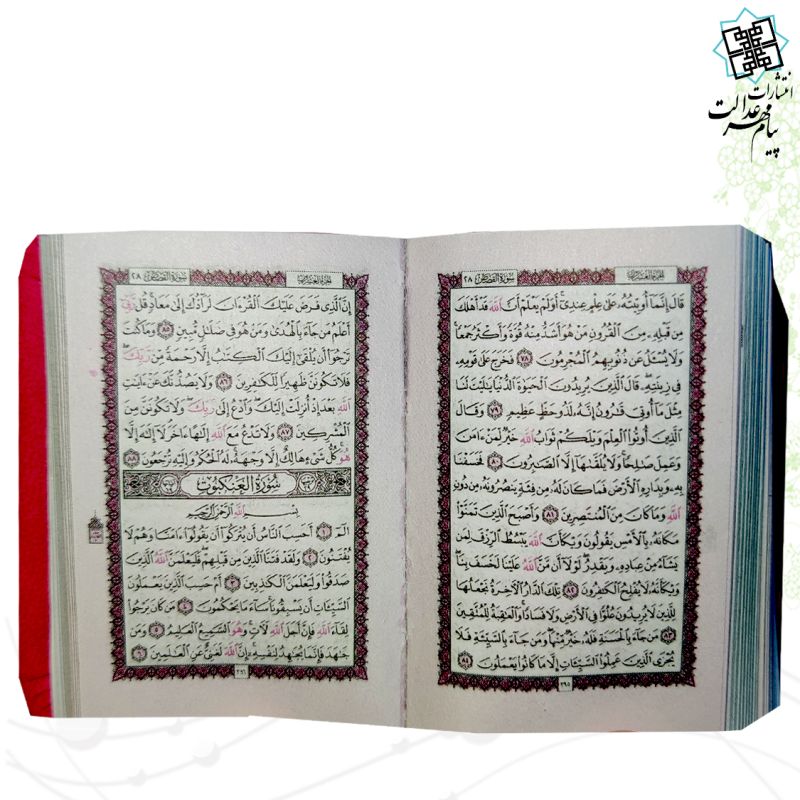 انتشارات
پیام مهر عدالت
الجزء العشرون
سورة القصص
٢٨
قَالَ إِنَّمَا أُوتِيتُهُ عَلَىٰ عِلْمٍ عِندِي أَوَلَمْ يَعْلَمْ أَنَّ اللَّهَ قَدْ أَهْلَكَ
مِن قَبْلِهِ مِنَ الْقُرُونِ مَنْ هُوَ أَشَدُّ مِنْهُ قُوَّةً وَأَكْثَرُ جَمْعًا
وَلَا يُسْئَلُ عَن ذُنُوبِهِمُ الْمُجْرِمُونَ ٧٨ فَخَرَجَ عَلَىٰ قَوْمِهِ
فِي زِينَتِهِ قَالَ الَّذِينَ يُرِيدُونَ الْحَيَوٰةَ الدُّنْيَا يَٰلَيْتَ لَنَا
مِثْلَ مَا أُوتِيَ قَٰرُونُ إِنَّهُ لَذُو حَظٍّ عَظِيمٍ ٧٩ وَقَالَ
الَّذِينَ أُوتُوا الْعِلْمَ وَيْلَكُمْ ثَوَابُ اللَّهِ خَيْرٌ لِّمَنْ ءَامَنَ
وَعَمِلَ صَٰلِحًا وَلَا يُلَقَّىٰهَا إِلَّا الصَّٰبِرُونَ ٨٠ فَخَسَفْنَا
بِهِ وَبِدَارِهِ الْأَرْضَ فَمَا كَانَ لَهُ مِن فِئَةٍ يَنصُرُونَهُ مِن دُونِ
اللَّهِ وَمَا كَانَ مِنَ الْمُنتَصِرِينَ ٨١ وَأَصْبَحَ الَّذِينَ تَمَنَّوْا
مَكَانَهُ بِالْأَمْسِ يَقُولُونَ وَيْكَأَنَّ اللَّهَ يَبْسُطُ الرِّزْقَ لِمَن
يَشَاءُ مِنْ عِبَادِهِ وَيَقْدِرُ لَوْلَا أَن مَّنَّ اللَّهُ عَلَيْنَا لَخَسَفَ بِنَا
وَيْكَأَنَّهُ لَا يُفْلِحُ الْكَٰفِرُونَ ٨٢ تِلْكَ الدَّارُ الْءَاخِرَةُ نَجْعَلُهَا
لِلَّذِينَ لَا يُرِيدُونَ عُلُوًّا فِي الْأَرْضِ وَلَا فَسَادًا وَالْعَٰقِبَةُ لِلْمُتَّقِينَ
٨٣ مَن جَاءَ بِالْحَسَنَةِ فَلَهُ خَيْرٌ مِّنْهَا وَمَن جَاءَ بِالسَّيِّئَةِ فَلَا
يُجْزَى الَّذِينَ عَمِلُوا السَّيِّئَاتِ إِلَّا مَا كَانُوا يَعْمَلُونَ ٨٤
٣٩٥
الجزء العشرون
سورة القصص
٢٨
إِنَّ الَّذِي فَرَضَ عَلَيْكَ الْقُرْءَانَ لَرَادُّكَ إِلَىٰ مَعَادٍ قُل رَّبِّي
أَعْلَمُ مَن جَاءَ بِالْهُدَىٰ وَمَنْ هُوَ فِي ضَلَٰلٍ مُّبِينٍ ٨٥ وَمَا كُنتَ
تَرْجُوا أَن يُلْقَىٰ إِلَيْكَ الْكِتَٰبُ إِلَّا رَحْمَةً مِّن رَّبِّكَ
فَلَا تَكُونَنَّ ظَهِيرًا لِّلْكَٰفِرِينَ ٨٦ وَلَا يَصُدُّنَّكَ عَنْ ءَايَٰتِ
اللَّهِ بَعْدَ إِذْ أُنزِلَتْ إِلَيْكَ وَادْعُ إِلَىٰ رَبِّكَ وَلَا تَكُونَنَّ مِنَ
الْمُشْرِكِينَ ٨٧ وَلَا تَدْعُ مَعَ اللَّهِ إِلَٰهًا ءَاخَرَ لَا إِلَٰهَ إِلَّا
هُوَ كُلُّ شَيْءٍ هَالِكٌ إِلَّا وَجْهَهُ لَهُ الْحُكْمُ وَإِلَيْهِ تُرْجَعُونَ ٨٨
سورة العنكبوت
بِسْمِ اللَّهِ الرَّحْمَٰنِ الرَّحِيمِ
الٓمٓ ١ أَحَسِبَ النَّاسُ أَن يُتْرَكُوا أَن يَقُولُوا ءَامَنَّا وَهُمْ لَا
يُفْتَنُونَ ٢ وَلَقَدْ فَتَنَّا الَّذِينَ مِن قَبْلِهِمْ فَلَيَعْلَمَنَّ اللَّهُ الَّذِينَ
صَدَقُوا وَلَيَعْلَمَنَّ الْكَٰذِبِينَ ٣ أَمْ حَسِبَ الَّذِينَ يَعْمَلُونَ
السَّيِّئَاتِ أَن يَسْبِقُونَا سَاءَ مَا يَحْكُمُونَ ٤ مَن كَانَ يَرْجُوا
لِقَاءَ اللَّهِ فَإِنَّ أَجَلَ اللَّهِ لَءَاتٍ وَهُوَ السَّمِيعُ الْعَلِيمُ ٥ وَمَن
جَٰهَدَ فَإِنَّمَا يُجَٰهِدُ لِنَفْسِهِ إِنَّ اللَّهَ لَغَنِيٌّ عَنِ الْعَٰلَمِينَ ٦
٣٩٦